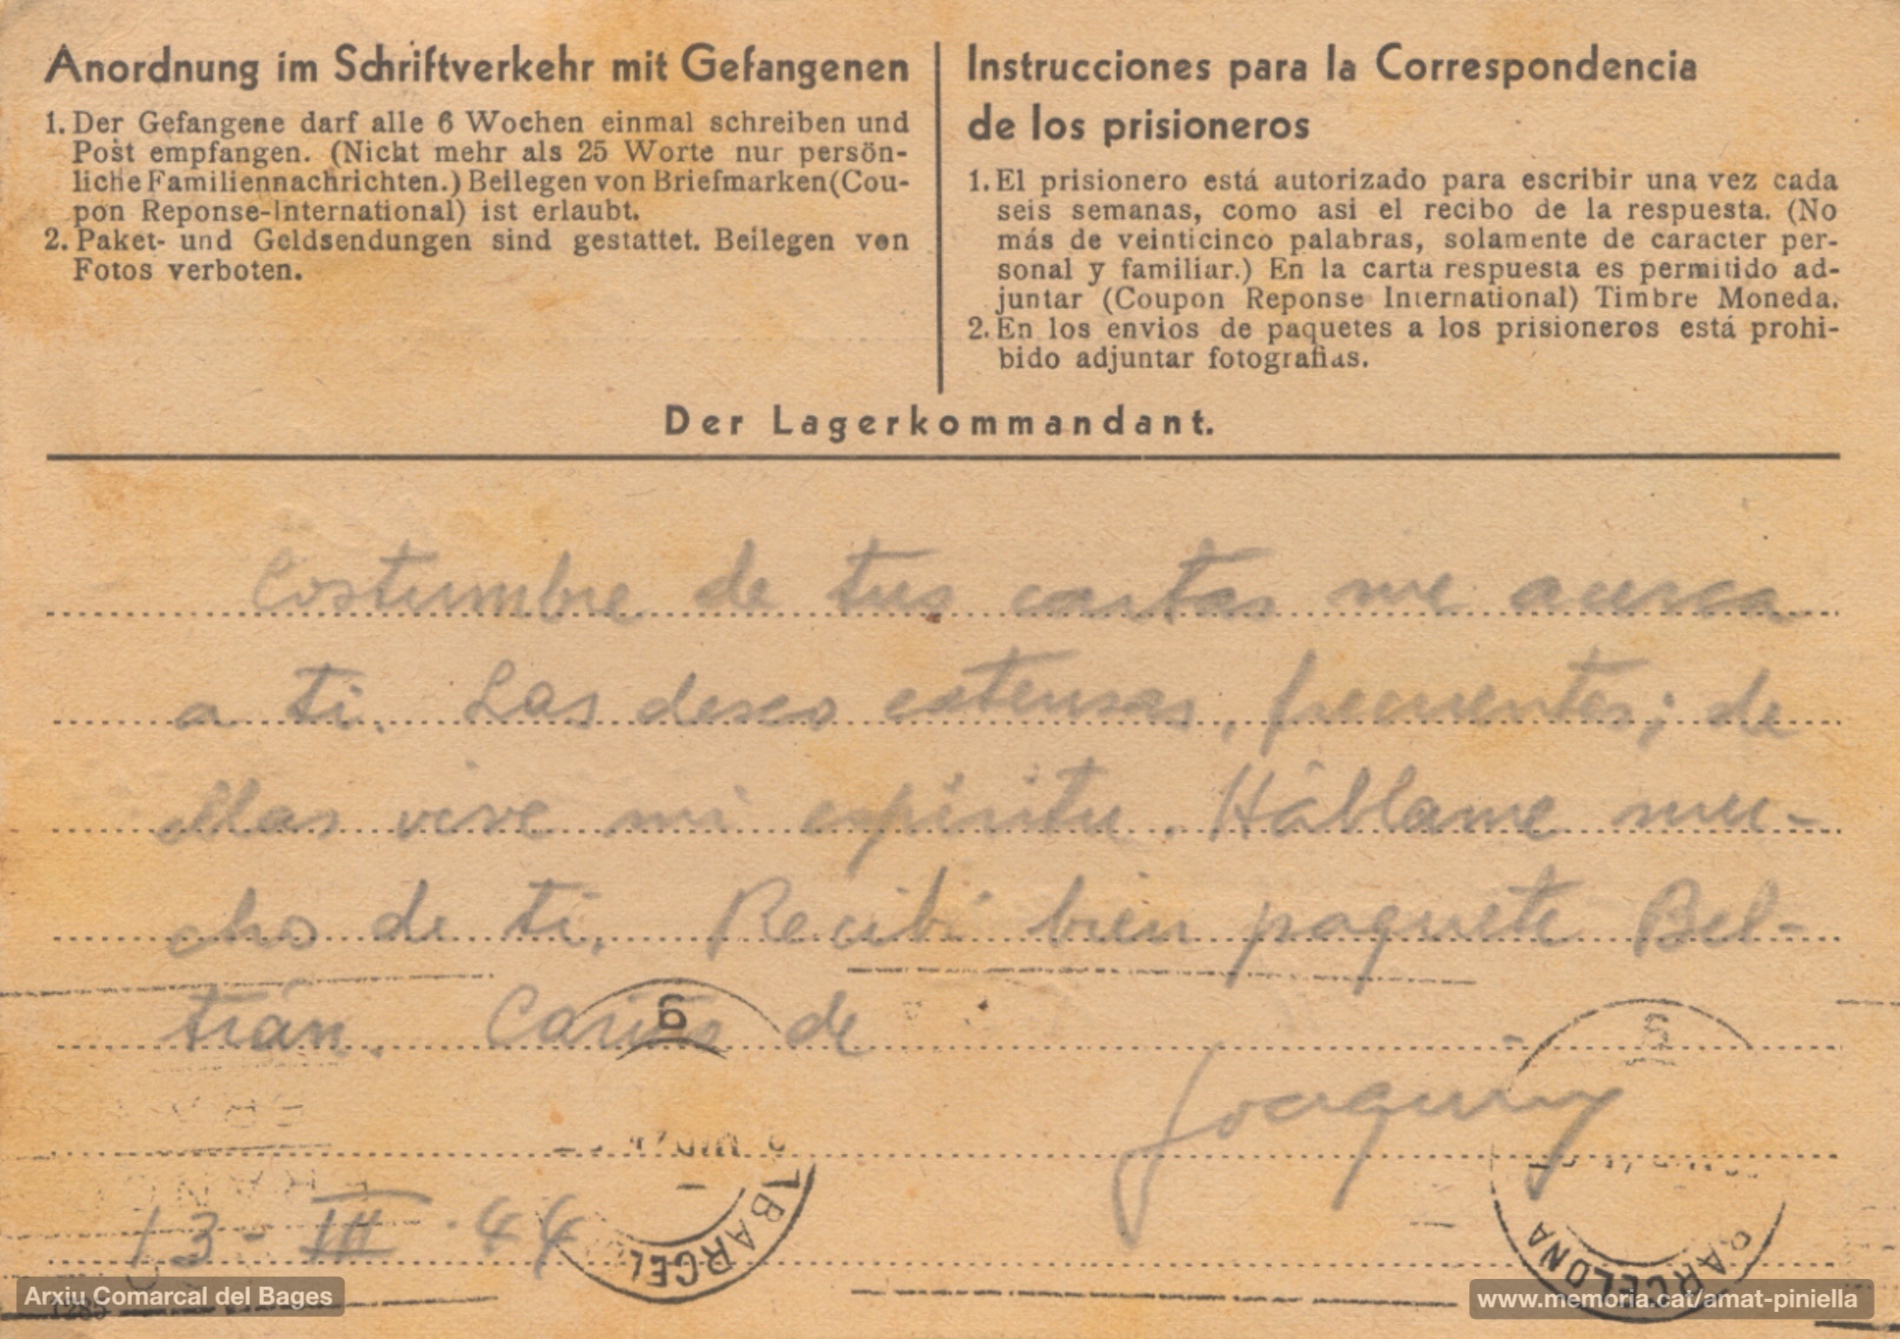 Anordnung im Schriftverkehr mit Gefangenen
1. Der Gefangene darf alle 6 Wochen einmal schreiben und
Post empfangen. (Nicht mehr als 25 Worte nur persön-
liche Familiennachrichten.) Beilegen von Briefmarken (Cou-
pon Reponse-International) ist erlaubt.
2. Paket- und Geldsendungen sind gestattet. Beilegen von
Fotos verboten.
Instrucciones para la Correspondencia
de los prisioneros
1. El prisionero está autorizado para escribir una vez cada
seis semanas, como asi el recibo de la respuesta. (No
más de veinticinco palabras, solamente de caracter per-
sonal y familiar.) En la carta respuesta es permitido ad-
juntar (Coupon Reponse International) Timbre Moneda.
2. En los envios de paquetes a los prisioneros está prohi-
bido adjuntar fotografias.
Der Lagerkommandant.
Costumbre de tus cartas me acerca
a ti. Las deseo extensas, frecuentes; de
ellas vive mi espíritu. Háblame mu-
cho de ti. Recibí bien paquete Bel-
trán. Cariños de
Joaquim
13-III-44
9
BARCEL
5
BARCELONA
Arxiu Comarcal del Bages
www.memoria.cat/amat-piniella